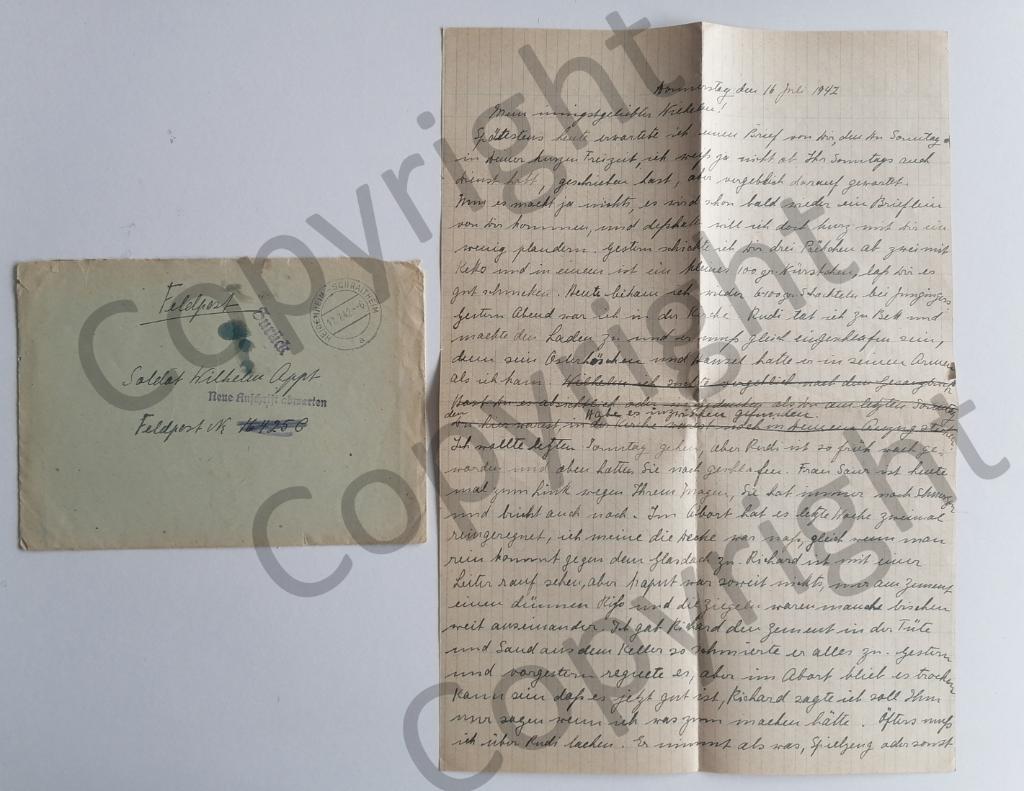 Feldpost
Zurück
HEIDENHEIM-SCHNAITHEIM
a
Soldat Wilhelm Appt
Neue Anschrift abwarten
Feldpost Nr 16425 C
Donnerstag den 16 Juli 1942
Mein innigstgeliebter Wilhelm!
Spätestens heute erwartete ich einen Brief von dir, den du Sonntag
in deiner kurzen Freizeit, ich weiß ja nicht ob Ihr Sonntags auch
Dienst habt, geschrieben hast, aber vergeblich darauf gewartet.
Nun es macht ja nichts, es wird schon bald wieder ein Brieflein
von dir kommen, und deßhalb will ich doch kurz mit dir ein
wenig plaudern. Gestern schickte ich dir drei Päckchen ab zwei mit
Keks und in einem ist ein kleines 100 gr. Würstchen, laß dir es
gut schmecken. Heute bekam ich wieder Schachteln bei Junginger
Gestern Abend war ich in der Kirche Rudi tat ich zu Bett und
machte den Laden zu und er muß gleich eingeschlafen sein,
denn sein Osterhäschen und Hansel hatte er in seinen Armen
als ich kam. Wilhelm ich suchte vergeblich nach dem Gesangbuch
Hast du es absichtlich oder als du am letzten Sonntag
den Habe es inzwischen gefunden.
du hier warst, in der Kirche warst noch in deinem Anzug stecken
Ich wollte letzten Sonntag gehen, aber Rudi ist so früh wach ge-
worden und oben hatten Sie noch geschlafen. Frau Saur ist heute
mal zum Link wegen Ihrem Magen, Sie hat immer noch Schmerzen
und bricht auch noch. Im Abort hat es letzte Woche zweimal
reingeregnet, ich meine die Decke war naß, gleich wenn man
rein kommt gegen dem Glasdach zu. Richard ist mit einer
Leiter rauf sehen, aber kaput war soweit nichts, nur am Zement
einen dünnen Riß und die Ziegeln waren manche bischen
weit auseinander. Ich gab Richard den Zement in der Tüte
und Sand aus dem Keller so schmierte er alles zu. Gestern
und vorgestern regnete es, aber im Abort blieb es trocken
Kann sein daß es jetzt gut ist, Richard sagte ich soll Ihm
nur sagen wenn ich was zum machen hätte. Öfters muß
ich über Rudi lachen. Er nimmt als was, Spielzeug oder sonst
Copyright
Copyright
Copyright